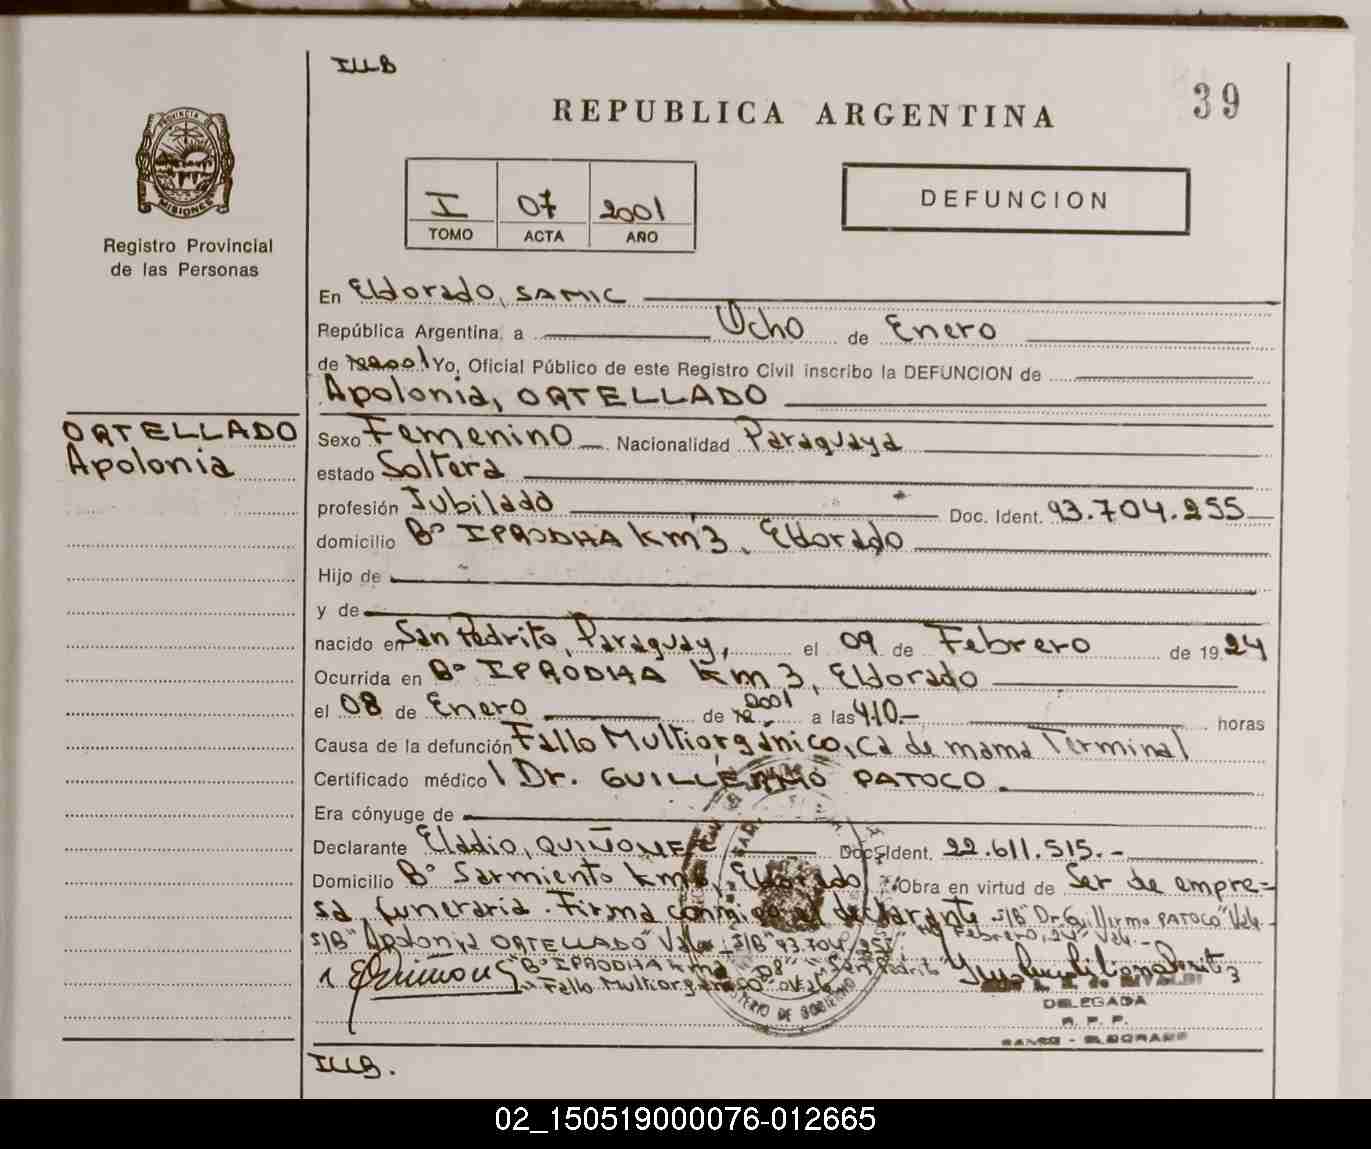 IUB
39
REPUBLICA ARGENTINA
PROVINCIA DE
MISIONES
Registro Provincial
de las Personas
I 07 2001
TOMO ACTA AÑO
DEFUNCION
En Eldorado, SAMIC
República Argentina, a Ocho de Enero
de 2001 Yo, Oficial Público de este Registro Civil inscribo la DEFUNCION de
Apolonia, ORTELLADO
ORTELLADO
Apolonia
Sexo Femenino Nacionalidad Paraguaya
estado Soltera
profesión Jubilado Doc. Ident. 93.704.255
domicilio Bº IPRODHA Km 3, Eldorado
Hijo de
y de
nacido en San Pedrito, Paraguay, el 09 de Febrero de 1924
Ocurrida en Bº IPRODHA Km 3, Eldorado
el 08 de Enero de 2001 a las 4.10.- horas
Causa de la defunción Fallo Multiorgánico, Ca de mama Terminal
Certificado médico Dr. GUILLERMO PATOCO.
Era cónyuge de
Declarante Eladio, QUIÑONEZ Doc. Ident. 22.611.515.-
Domicilio Bº Sarmiento Km Eldorado Obra en virtud de Ser de empre=
sa funeraria. Firma conmigo el declarante S/B "Dr. Guillermo PATOCO" Vale
S/B "Apolonia ORTELLADO" Vale S/B "93.704.255" Febrero, 24" Vale-
"Bº IPRODHA Km "08" "San Pedrito"
Fallo Multiorgánico" Vale
DELEGADA
R. P. P.
SAMIC - ELDORADO
IUB.
02_150519000076-012665